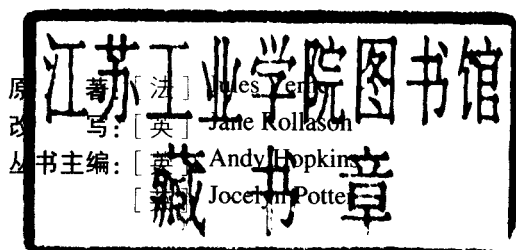 江苏工业学院图书馆
藏书章
原 著：[ 法 ] Jules Verne
改 写：[ 英 ] Jane Rollason
丛书主编：[ 英 ] Andy Hopkins
[ 英 ] Jocelyn Potter